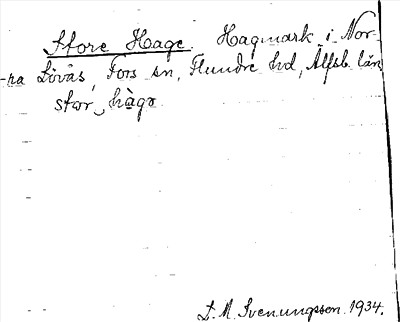 Store Hage. Hagmark i Nor-
ra Lövås, Fors sn, Flundre hd, Älfsb. län
stor hago
L. M. Svenungsson. 1934.